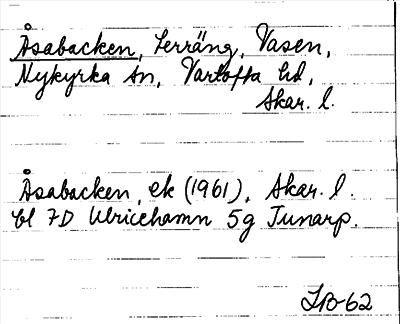 Åsabacken, terräng, Vasen,
Nykyrka sn, Vartofta hd,
Skar. l.
Åsabacken, ek (1961), Skar. l.
bl 7D Ulricehamn 5g Tunarp.
LB-62